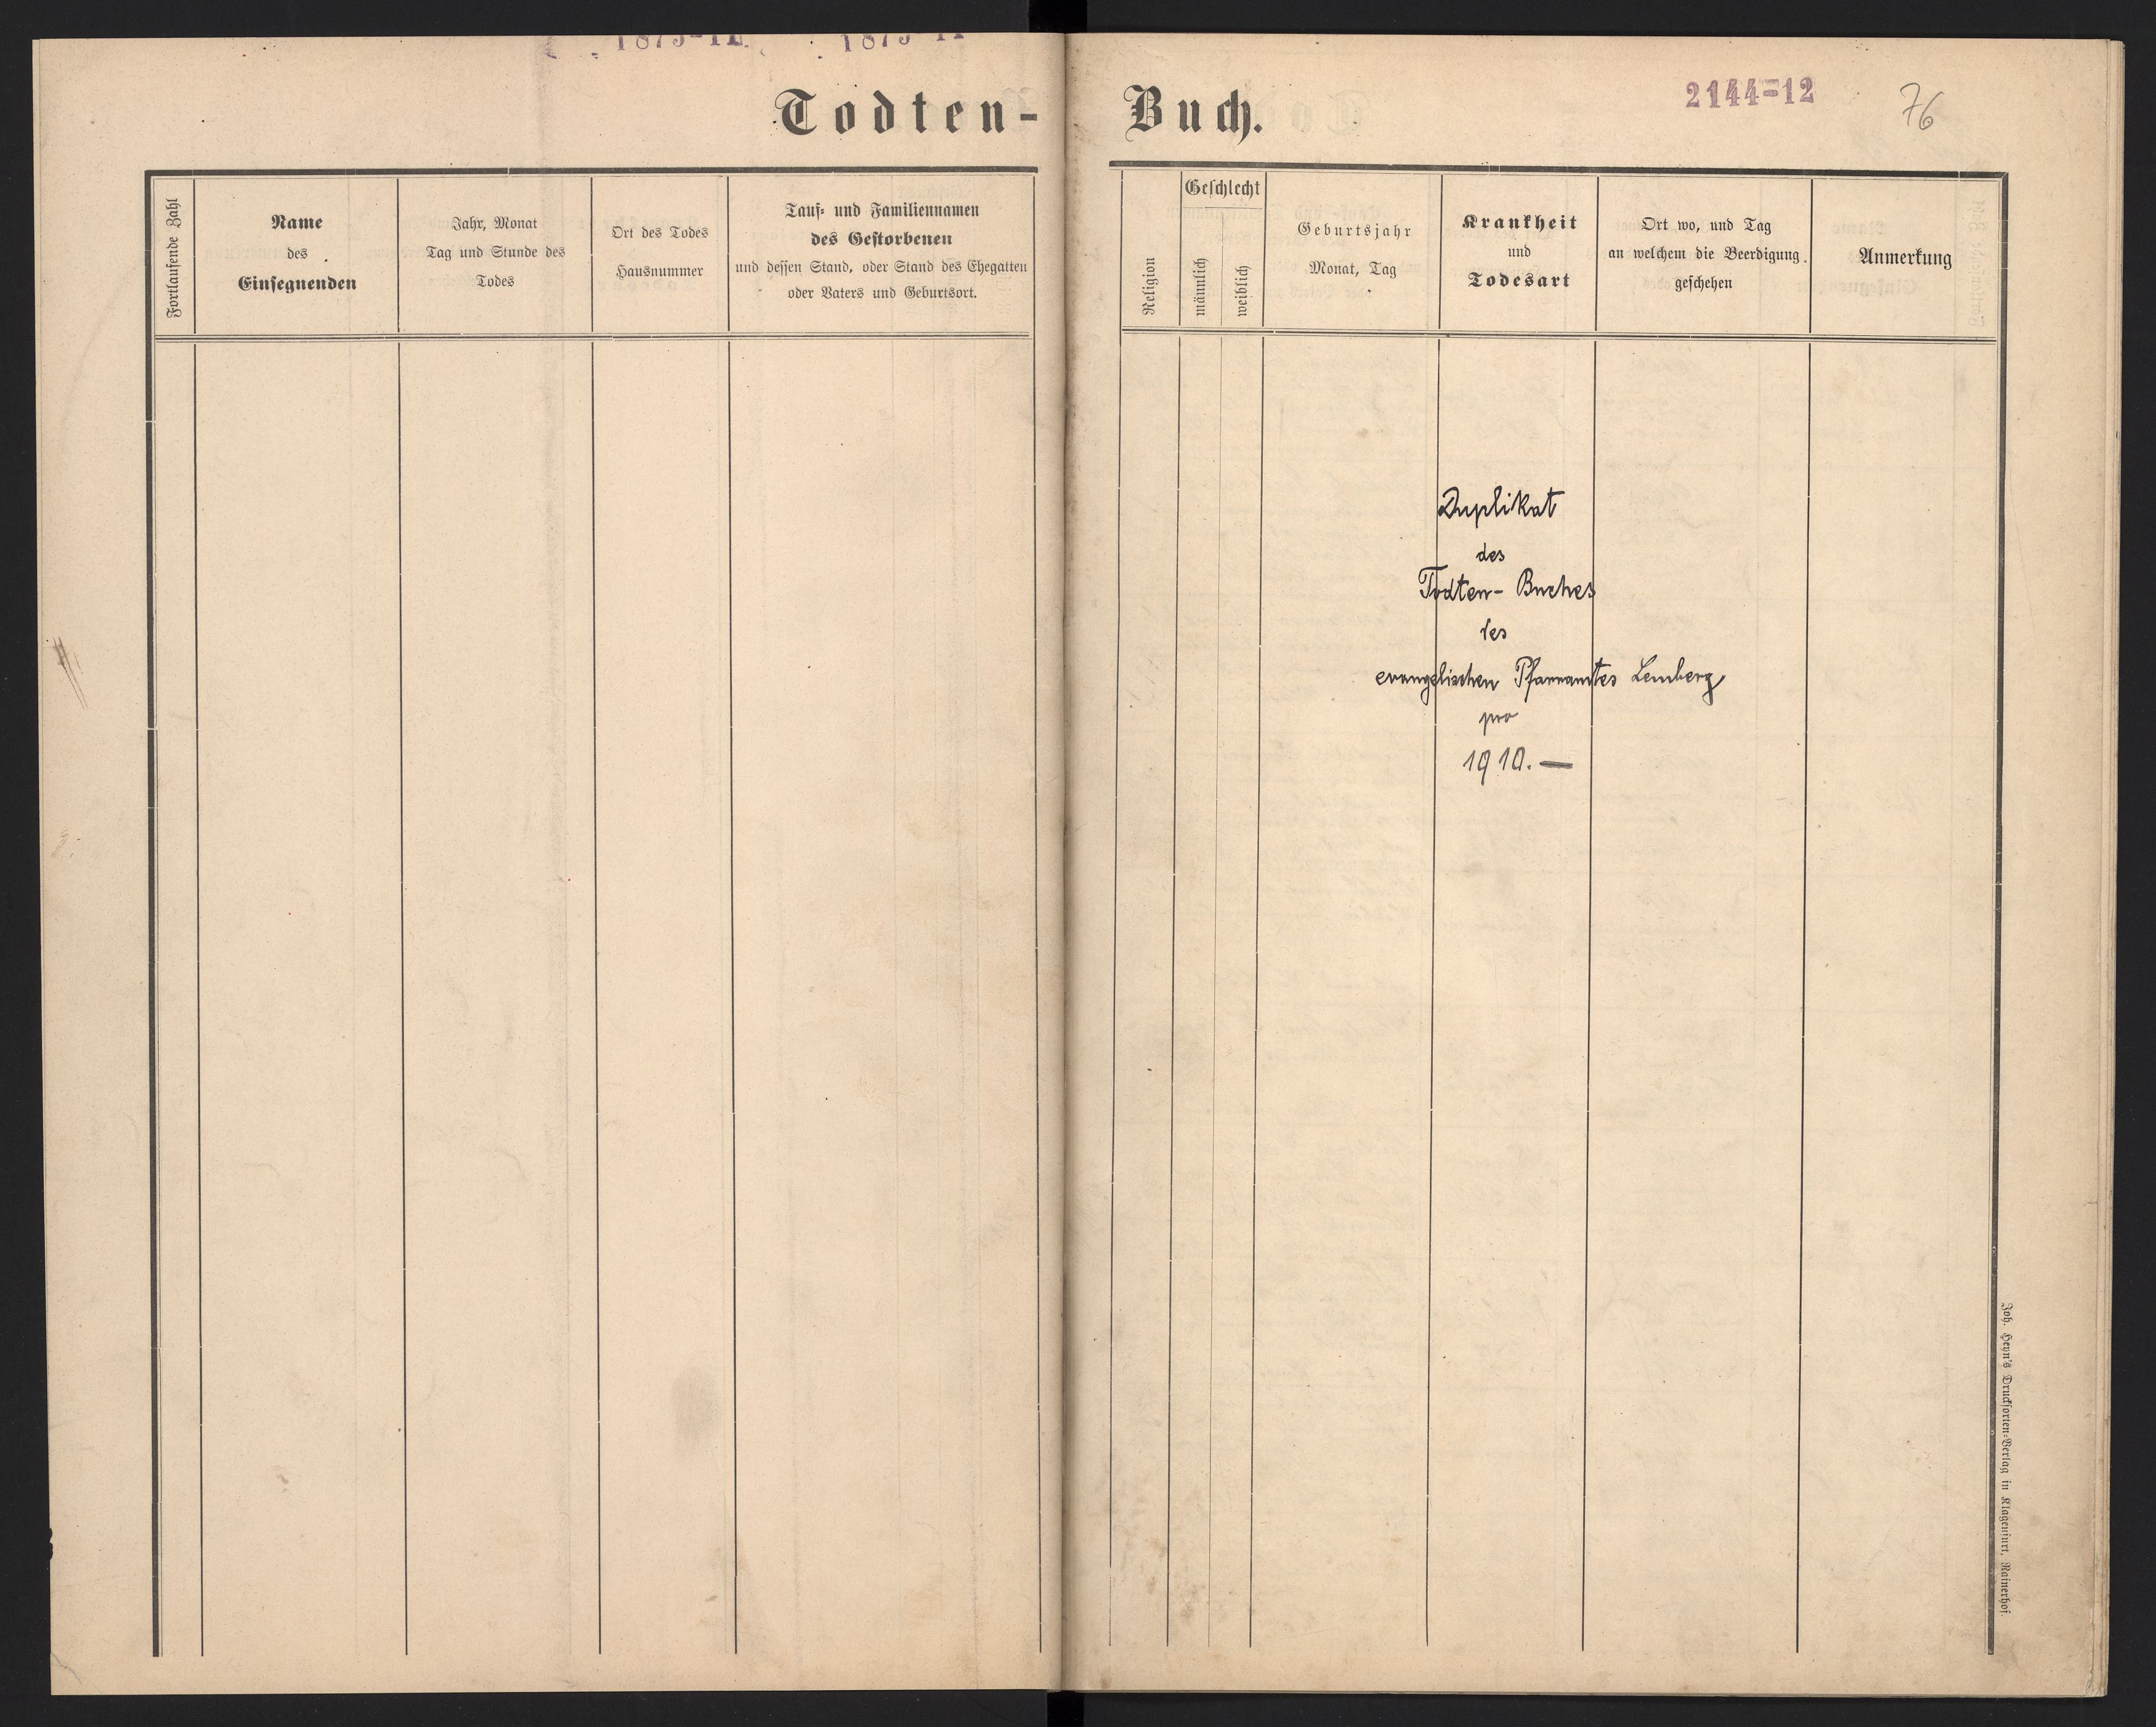 Todten-Buch.
2144-12
76
Fortlaufende Zahl
Name
des
Einsegnenden
Jahr, Monat
Tag und Stunde des
Todes
Ort des Todes
Hausnummer
Tauf- und Familiennamen
des Gestorbenen
und dessen Stand, oder Stand des Ehegatten
oder Vaters und Geburtsort.
Religion
Geschlecht
männlich
weiblich
Geburtsjahr
Monat, Tag
Krankheit
und
Todesart
Ort wo, und Tag
an welchem die Beerdigung
geschehen
Anmerkung
Duplikat
des
Todten- Buches
des
evangelischen Pfarramtes Lemberg
pro
1910.—
Joh. Heyn's Drucksorten-Verlag in Klagenfurt, Rainerhof.